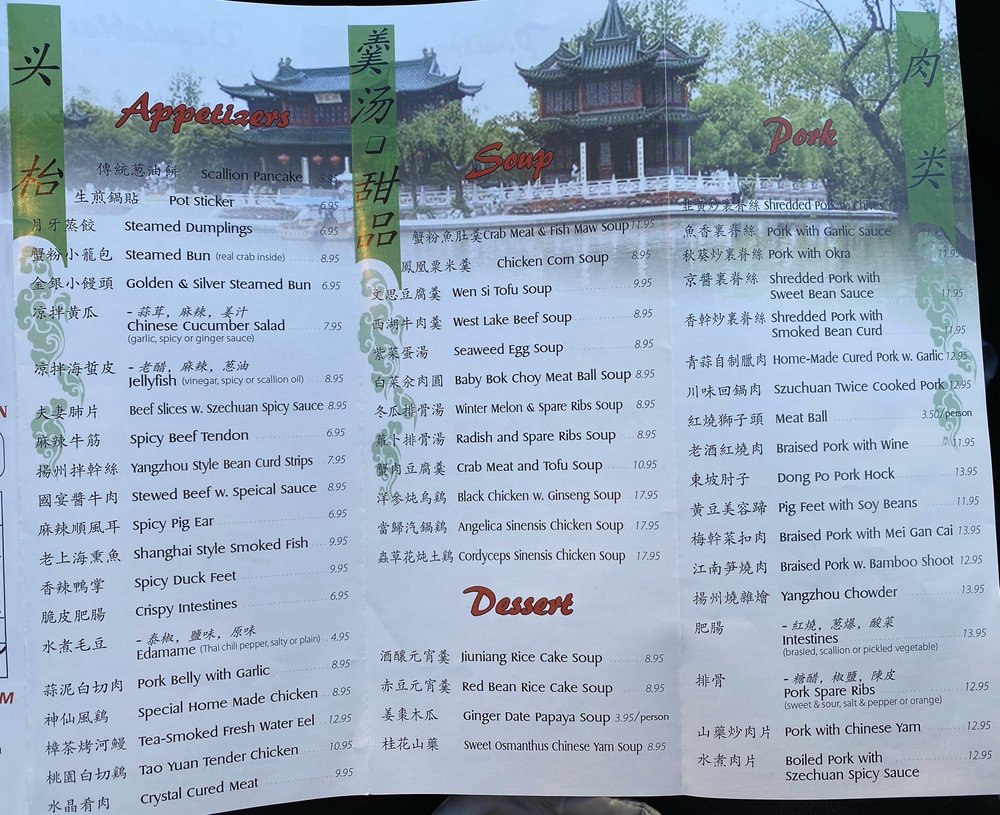 头枱
Appetizers
傳統葱油餅 Scallion Pancake 5.95
生煎鍋貼 Pot Sticker 6.95
月牙蒸餃 Steamed Dumplings 6.95
蟹粉小籠包 Steamed Bun (real crab inside) 8.95
金銀小饅頭 Golden & Silver Steamed Bun 6.95
凉拌黃瓜 - 蒜茸, 麻辣, 姜汁
Chinese Cucumber Salad 7.95
(garlic, spicy or ginger sauce)
凉拌海蜇皮 - 老醋, 麻辣, 葱油
Jellyfish (vinegar, spicy or scallion oil) 8.95
夫妻肺片 Beef Slices w. Szechuan Spicy Sauce 8.95
麻辣牛筋 Spicy Beef Tendon 6.95
揚州拌幹絲 Yangzhou Style Bean Curd Strips 7.95
國宴醬牛肉 Stewed Beef w. Speical Sauce 8.95
麻辣順風耳 Spicy Pig Ear 6.95
老上海熏魚 Shanghai Style Smoked Fish 9.95
香辣鴨掌 Spicy Duck Feet 9.95
脆皮肥腸 Crispy Intestines 6.95
水煮毛豆 - 泰椒, 鹽味, 原味
Edamame (Thai chili pepper, salty or plain) 4.95
蒜泥白切肉 Pork Belly with Garlic 8.95
神仙風鷄 Special Home Made Chicken 8.95
樟茶烤河鰻 Tea-Smoked Fresh Water Eel 12.95
桃園白切鷄 Tao Yuan Tender Chicken 10.95
水晶肴肉 Crystal Cured Meat 9.95
羹汤口甜品
Soup
蟹粉魚肚羹 Crab Meat & Fish Maw Soup 11.95
鳳凰粟米羹 Chicken Corn Soup 8.95
文思豆腐羹 Wen Si Tofu Soup 9.95
西湖牛肉羹 West Lake Beef Soup 8.95
紫菜蛋湯 Seaweed Egg Soup 8.95
白菜汆肉圓 Baby Bok Choy Meat Ball Soup 8.95
冬瓜排骨湯 Winter Melon & Spare Ribs Soup 8.95
蘿卜排骨湯 Radish and Spare Ribs Soup 8.95
蟹肉豆腐羹 Crab Meat and Tofu Soup 10.95
洋參炖烏鷄 Black Chicken w. Ginseng Soup 17.95
當歸汽鍋鷄 Angelica Sinensis Chicken Soup 17.95
蟲草花炖土鷄 Cordyceps Sinensis Chicken Soup 17.95
Dessert
酒釀元宵羹 Jiuniang Rice Cake Soup 8.95
赤豆元宵羹 Red Bean Rice Cake Soup 8.95
姜棗木瓜 Ginger Date Papaya Soup 3.95/person
桂花山藥 Sweet Osmanthus Chinese Yam Soup 8.95
肉类
Pork
韭黃炒裏脊絲 Shredded Pork w. Chives 11.95
魚香裏脊絲 Pork with Garlic Sauce 11.95
秋葵炒裏脊絲 Pork with Okra 11.95
京醬裏脊絲 Shredded Pork with
Sweet Bean Sauce 11.95
香幹炒裏脊絲 Shredded Pork with
Smoked Bean Curd 11.95
青蒜自制臘肉 Home-Made Cured Pork w. Garlic 12.95
川味回鍋肉 Szuchuan Twice Cooked Pork 12.95
紅燒獅子頭 Meat Ball 3.50/person
老酒紅燒肉 Braised Pork with Wine 11.95
東坡肘子 Dong Po Pork Hock 13.95
黃豆美容蹄 Pig Feet with Soy Beans 11.95
梅幹菜扣肉 Braised Pork with Mei Gan Cai 13.95
江南笋燒肉 Braised Pork w. Bamboo Shoot 12.95
揚州燒雜燴 Yangzhou Chowder 13.95
肥腸 - 紅燒, 葱爆, 酸菜
Intestines 13.95
(brasied, scallion or pickled vegetable)
排骨 - 糖醋, 椒鹽, 陳皮
Pork Spare Ribs 12.95
(sweet & sour, salt & pepper or orange)
山藥炒肉片 Pork with Chinese Yam 12.95
水煮肉片 Boiled Pork with 12.95
Szechuan Spicy Sauce